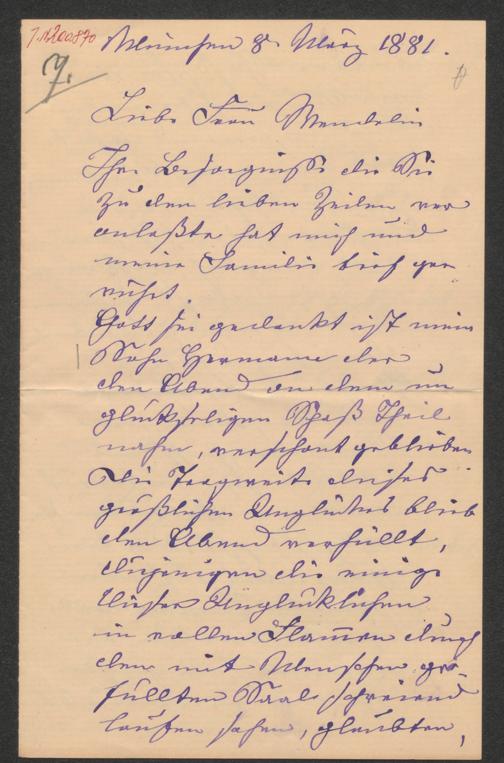 I.N.200870
7.
München 8. März 1881.
Liebe Frau Wendelin
Ihre Besorgnisse die Sie
zu den lieben Zeilen ver
anlaßte hat mich und
meine Familie tief ge
rührt.
Gott sei gedankt ist mein
Sohn Hermann der
den Abend an dem un
glückseligen Spaß Theil
nahm, verschont geblieben
Die Tragweite dieses
gräßlichen Unglückes blieb
den Abend verhüllt,
diejenigen die einige
dieser Unglücklichen
in vollen Flamen durch
den mit Menschen ge
füllten Saal schreiend
laufen sahen, glaubten,